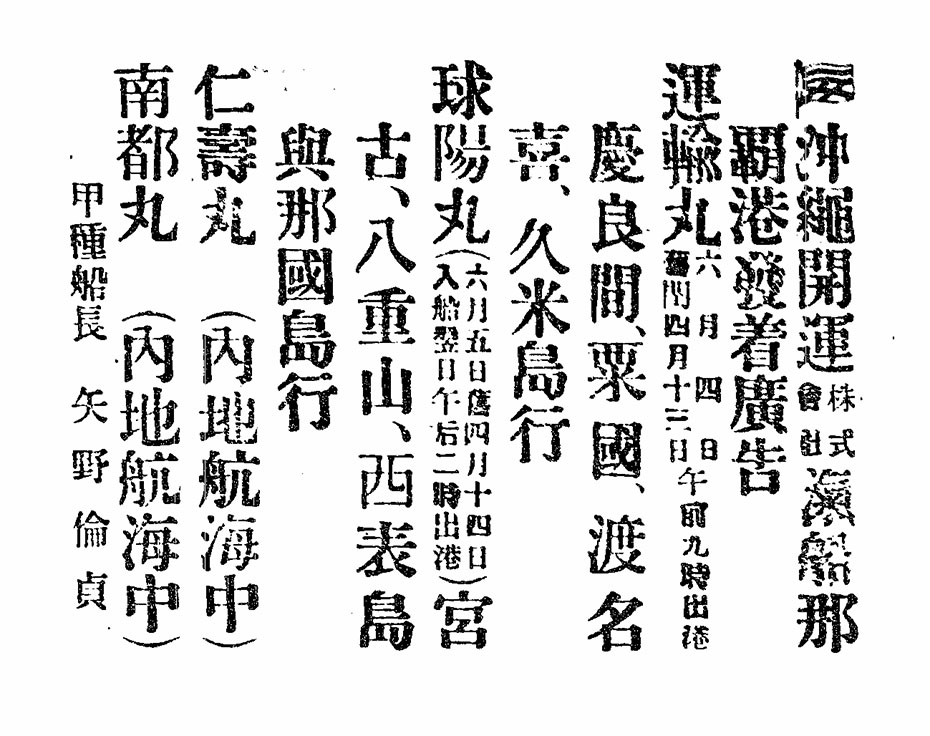 沖繩開運株式會社滊船那
覇港發着廣告
運輸丸六月四日舊四月十三日午前九時出港
慶良間、粟國、渡名
喜、久米島行
球陽丸(六月五日舊四月十四日入船翌日午后二時出港)宮
古、八重山、西表島
與那國島行
仁壽丸(內地航海中)
南都丸(內地航海中)
甲種船長 矢野倫貞